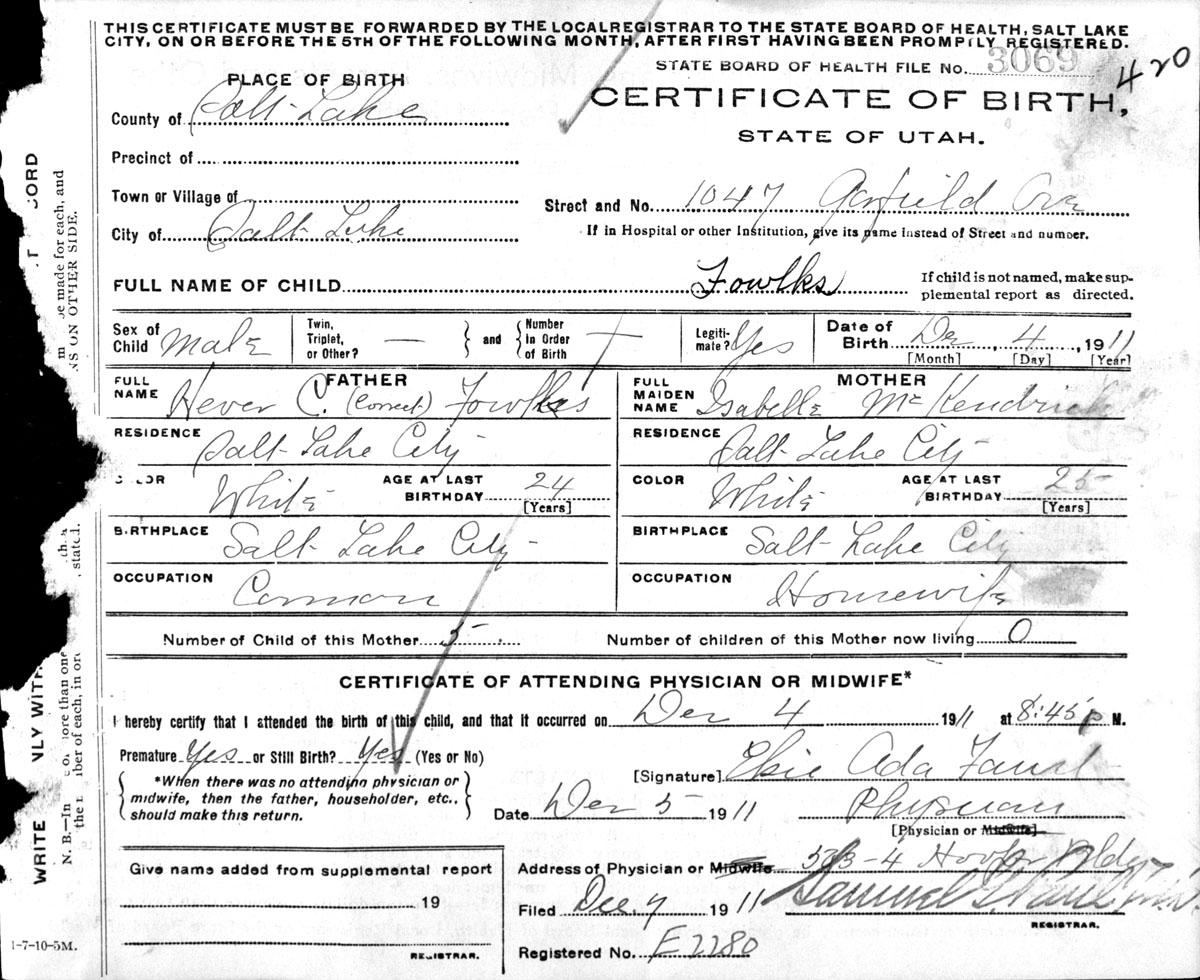 THIS CERTIFICATE MUST BE FORWARDED BY THE LOCAL REGISTRAR TO THE STATE BOARD OF HEALTH, SALT LAKE
CITY, ON OR BEFORE THE 5TH OF THE FOLLOWING MONTH, AFTER FIRST HAVING BEEN PROMPTLY REGISTERED.
STATE BOARD OF HEALTH FILE No. 3069
420
PLACE OF BIRTH
CERTIFICATE OF BIRTH,
STATE OF UTAH.
County of Salt Lake
Precinct of
Town or Village of
Street and No. 1047 Garfield Ave
City of Salt Lake
If in Hospital or other Institution, give its name instead of Street and number.
FULL NAME OF CHILD Fowlks
If child is not named, make sup-
plemental report as directed.
Sex of Child Male
Twin, Triplet, or Other? —
and
Number in Order of Birth
Legiti-mate? Yes
Date of Birth Dec 4, 1911
[Month] [Day] [Year]
FATHER
FULL NAME Hever C. (Correct) Fowlks
MOTHER
FULL MAIDEN NAME Isabelle McKendrick
RESIDENCE Salt Lake City
RESIDENCE Salt Lake City
COLOR White AGE AT LAST BIRTHDAY 24 [Years]
COLOR White AGE AT LAST BIRTHDAY 25 [Years]
BIRTHPLACE Salt Lake City
BIRTHPLACE Salt Lake City
OCCUPATION
OCCUPATION Housewife
Number of Child of this Mother 5
Number of children of this Mother now living 0
CERTIFICATE OF ATTENDING PHYSICIAN OR MIDWIFE*
I hereby certify that I attended the birth of this child, and that it occurred on Dec 4 1911 at 8:45 p M.
Premature Yes or Still Birth? Yes (Yes or No)
*When there was no attending physician or
midwife, then the father, householder, etc.,
should make this return.
[Signature] Elsie Ada Faust
Date Dec 5 1911 Physician
[Physician or Midwife]
Give name added from supplemental report
19
REGISTRAR.
Address of Physician or Midwife 513-4 Hooper Bldg
Filed Dec 7 1911 Samuel G. Paul
REGISTRAR.
Registered No. E2280
1-7-10-5M.
WRITE
NLY WITH
CORD
N. B.—In
more than one
be made for each, and
the
ber of each, in or
stated.
NS ON OTHER SIDE.